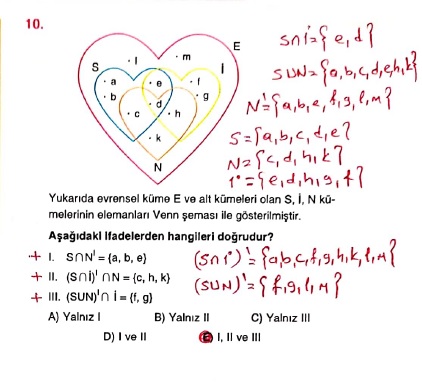 10.
E
S
İ
N
• l
• m
• a
• b
• e
• f
• g
• d
• c
• h
• k
S∩İ={e,d}
SUN={a,b,c,d,e,h,k}
N'={a,b,e,f,g,l,m}
S={a,b,c,d,e}
N={c,d,h,k}
İ={e,d,h,g,f}
Yukarıda evrensel küme E ve alt kümeleri olan S, İ, N kü-
melerinin elemanları Venn şeması ile gösterilmiştir.
Aşağıdaki ifadelerden hangileri doğrudur?
+ I. S∩N' = {a, b, e} (S∩İ)'={a,b,c,f,g,h,k,l,m}
+ II. (S∩İ)' ∩N = {c, h, k} (SUN)'={f,g,l,m}
+ III. (SUN)'∩ İ = {f, g}
A) Yalnız I B) Yalnız II C) Yalnız III
D) I ve II E) I, II ve III